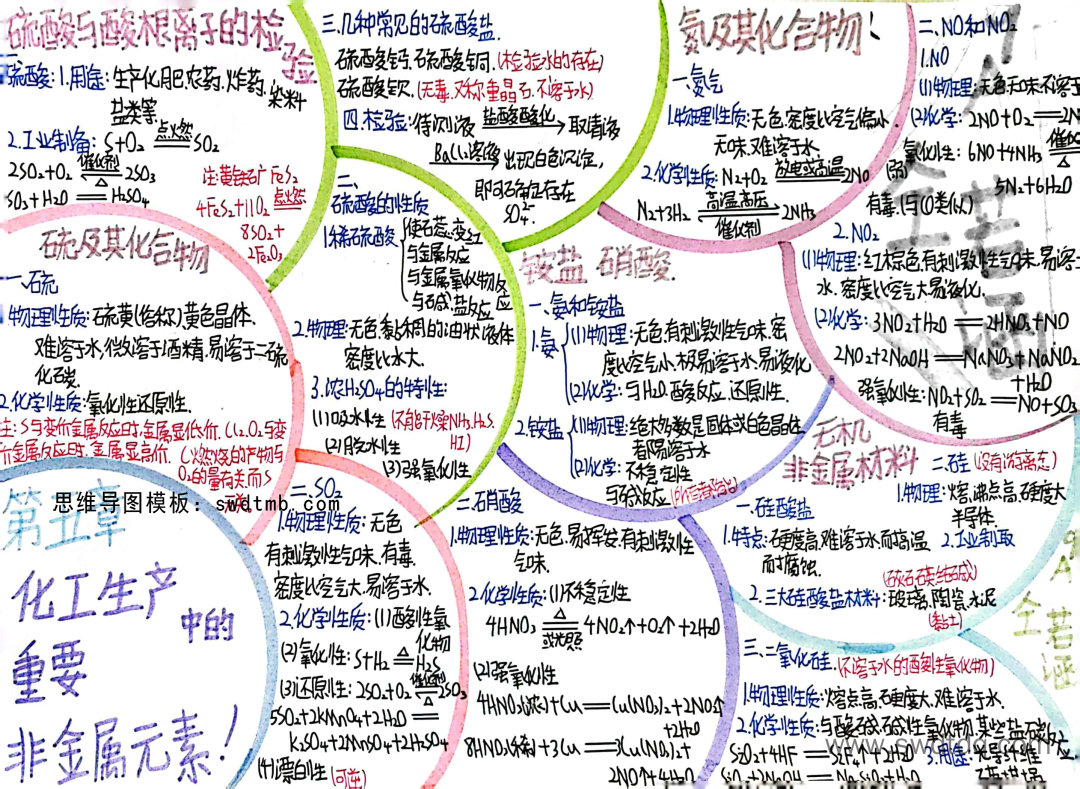 硫酸与酸根离子的检验
一、硫酸:1.用途:生产化肥、农药、炸药、染料
盐类等.
2.工业制备:S+O₂ 点燃 SO₂
2SO₂+O₂ 催化剂 △ 2SO₃
SO₃+H₂O=H₂SO₄
注:黄铁矿FeS₂
4FeS₂+11O₂ 点燃
8SO₂+
2Fe₂O₃
三.几种常见的硫酸盐.
硫酸钙、硫酸铜.(检验水的存在)
硫酸钡.(无毒.又称重晶石.不溶于水)
四.检验:待测液 盐酸酸化 取清液
BaCl₂溶液 出现白色沉淀,
即可确证存在
SO₄²⁻.
二、
硫酸的性质
1.稀硫酸
使石蕊变红
与金属反应
与金属氧化物反应
与碱、盐反应
2.物理:无色.黏稠的油状液体
密度比水大.
3.浓H₂SO₄的特性:
(1)吸水性(不用于干燥NH₃.H₂S.
HI)
(2)脱水性
(3)强氧化性
氮及其化合物!
一.氮气
1.物理性质:无色.密度比空气偏小.
无味.难溶于水
2.化学性质:N₂+O₂ 放电或高温 2NO
N₂+3H₂ 高温高压 催化剂 2NH₃
二.NO和NO₂
1.NO
(1)物理:无色无味不溶于
(2)化学:2NO+O₂=2N
氧化性:6NO+4NH₃ 催化
(弱)
5N₂+6H₂O
有毒.(与CO类似)
2.NO₂
(1)物理:红棕色.有刺激性气味.易溶于
水.密度比空气大.易液化.
(2)化学:3NO₂+H₂O=2HNO₃+NO
2NO₂+2NaOH=NaNO₃+NaNO₂
+H₂O
强氧化性:NO₂+SO₂=NO+SO₃
有毒
9A
仝若涵
硫及其化合物
一.硫
1.物理性质:硫黄(俗称)黄色晶体、
难溶于水,微溶于酒精.易溶于二硫
化碳.
2.化学性质:氧化性还原性.
注:S与变价金属反应时,金属显低价.Cl₂.O₂与变
价金属反应时.金属显高价.(燃烧的产物与
O₂的量有关而S
铵盐 硝酸.
一.氨和铵盐
1.氨
(1)物理:无色.有刺激性气味.密
度比空气小.极易溶于水.易液化
(2)化学:与H₂O.酸反应.还原性.
2.铵盐
(1)物理:绝大多数是固体或白色晶体
都易溶于水
(2)化学:不稳定性
与碱反应
二.硝酸
1.物理性质:无色.易挥发.有刺激性
气味.
2.化学性质:(1)不稳定性
4HNO₃ △ 或光照 4NO₂↑+O₂↑+2H₂O
(2)强氧化性
4HNO₃(浓)+Cu=Cu(NO₃)₂+2NO₂↑
+2H₂O
8HNO₃(稀)+3Cu=3Cu(NO₃)₂+
2NO↑+4H₂O
无机
非金属材料
一.硅酸盐
1.特点:硬度高.难溶于水.耐高温
耐腐蚀.
2.三大硅酸盐材料:玻璃.陶瓷.水泥
(黏土)
二.硅(没有游离态)
1.物理:熔、沸点高.硬度大
半导体
2.工业制取
三.二氧化硅.(不溶于水的酸性氧化物)
1.物理性质:熔点高.硬度大.难溶于水.
2.化学性质:与酸碱.碱性氧化物.某些盐.碳反应.
SiO₂+4HF=SiF₄↑+2H₂O
3.用途:光导纤维
SiO₂+2NaOH=Na₂SiO₃+H₂O
9A
仝若涵
思维导图模板:swdtmb.com
第五章
化工生产
中的
重要
非金属元素!
二.SO₂
1.物理性质:无色
有刺激性气味.有毒.
密度比空气大.易溶于水.
2.化学性质:(1)酸性氧
化物
(2)氧化性:S+H₂ △ H₂S
(3)还原性:2SO₂+O₂ 催化剂 △ 2SO₃
5SO₂+2KMnO₄+2H₂O=
K₂SO₄+2MnSO₄+2H₂SO₄
(4)漂白性(可逆)